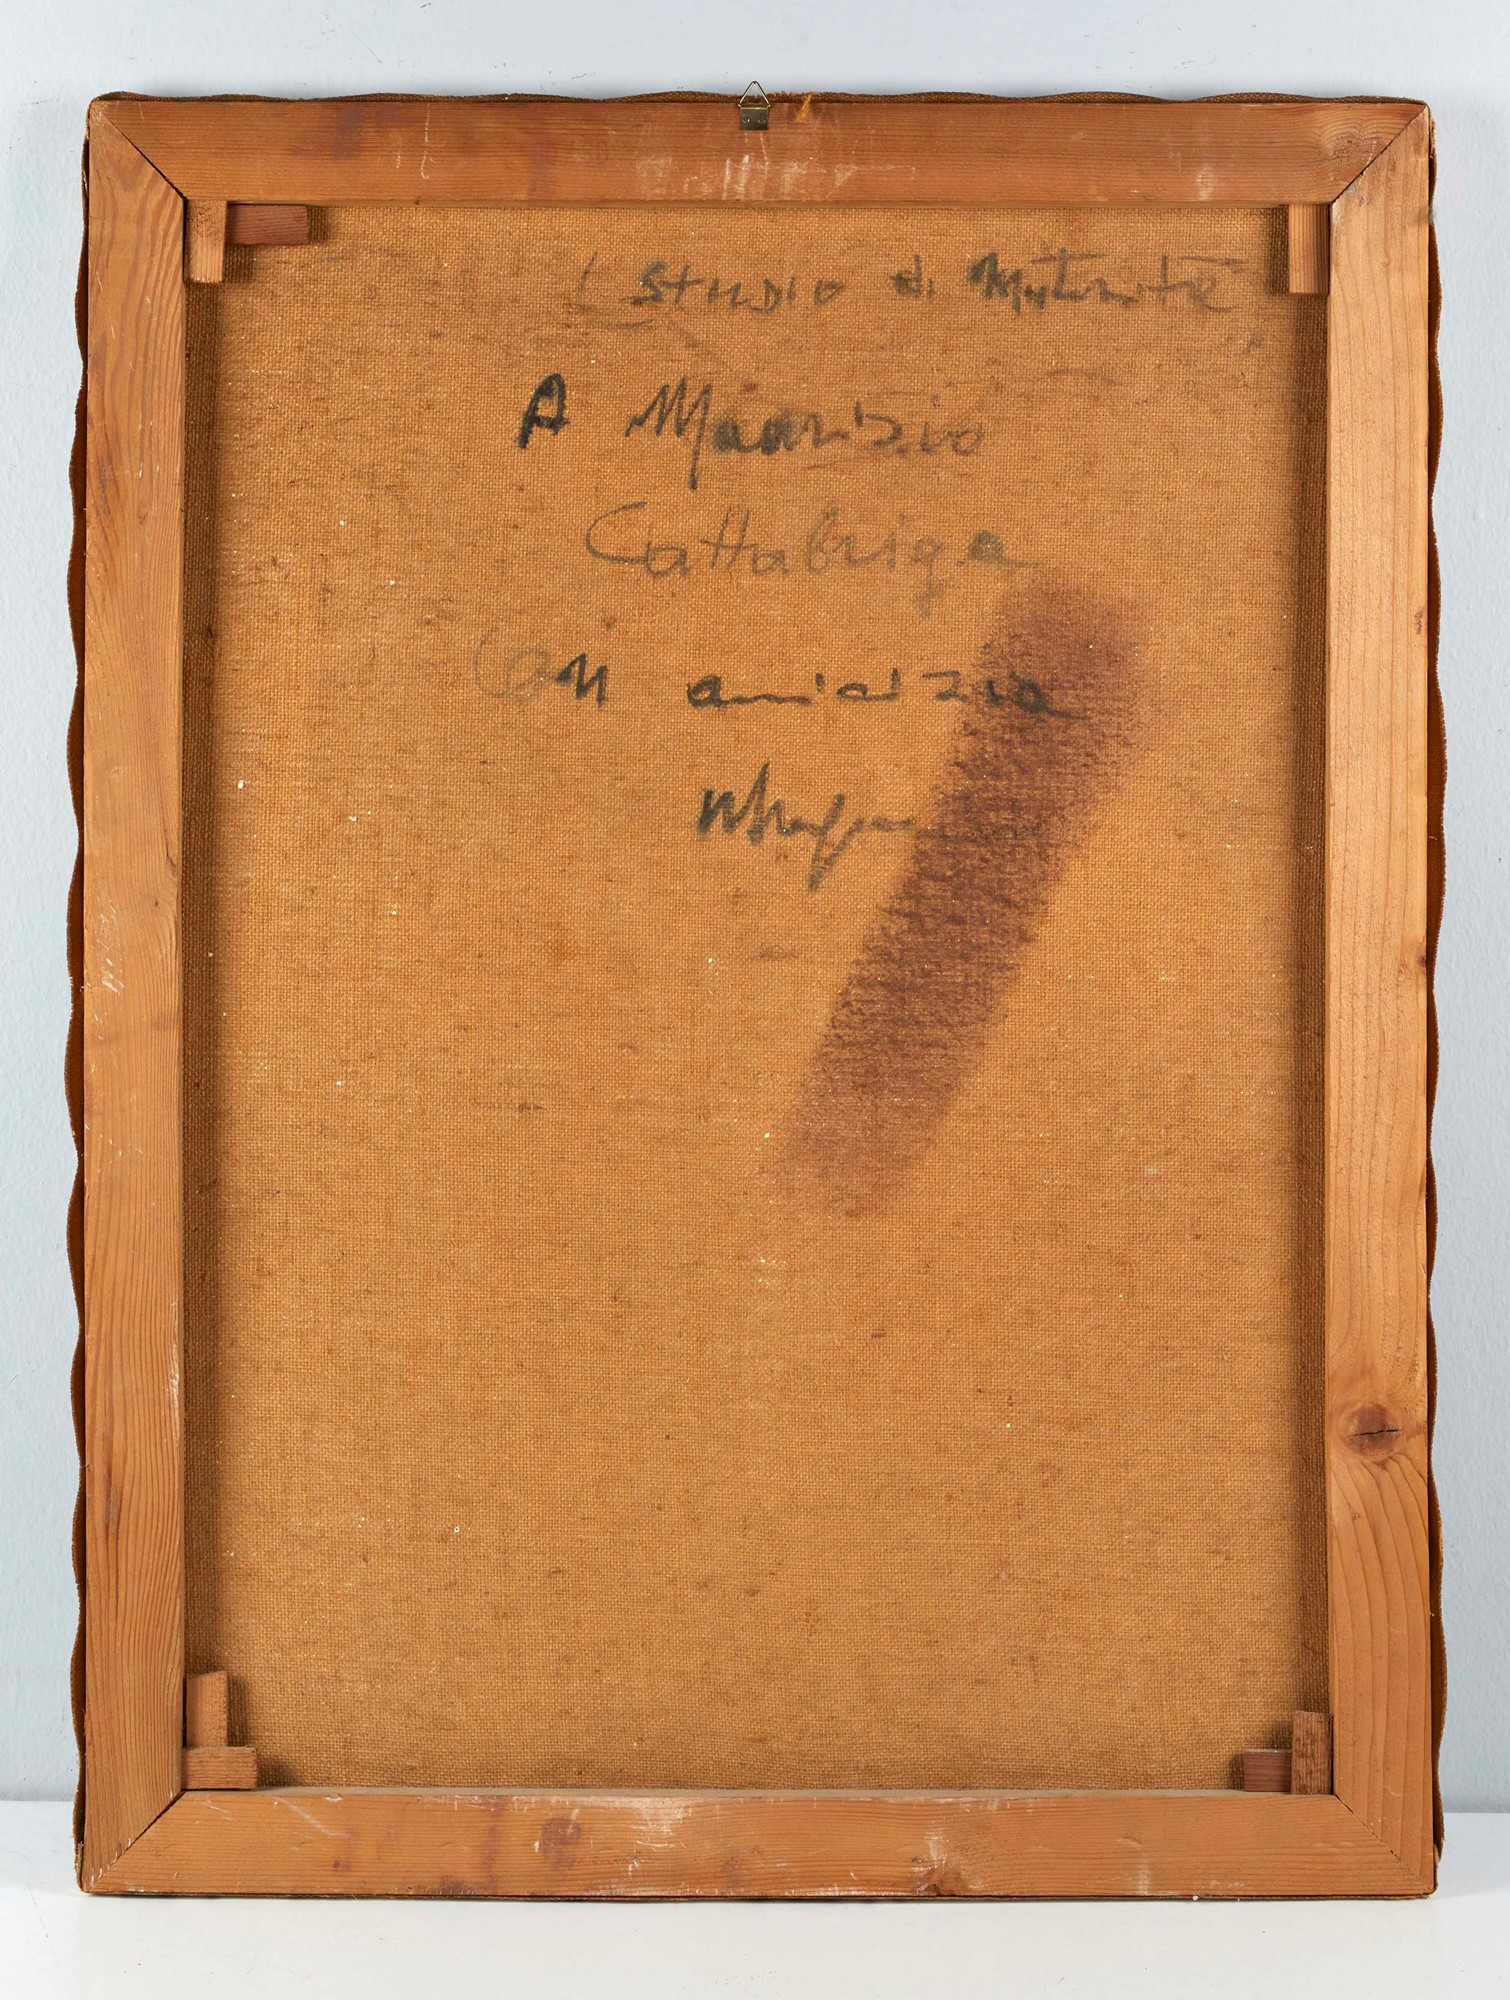 ( STUDIO di Maternità
A Maurizio
Cattabriga
Con amicizia